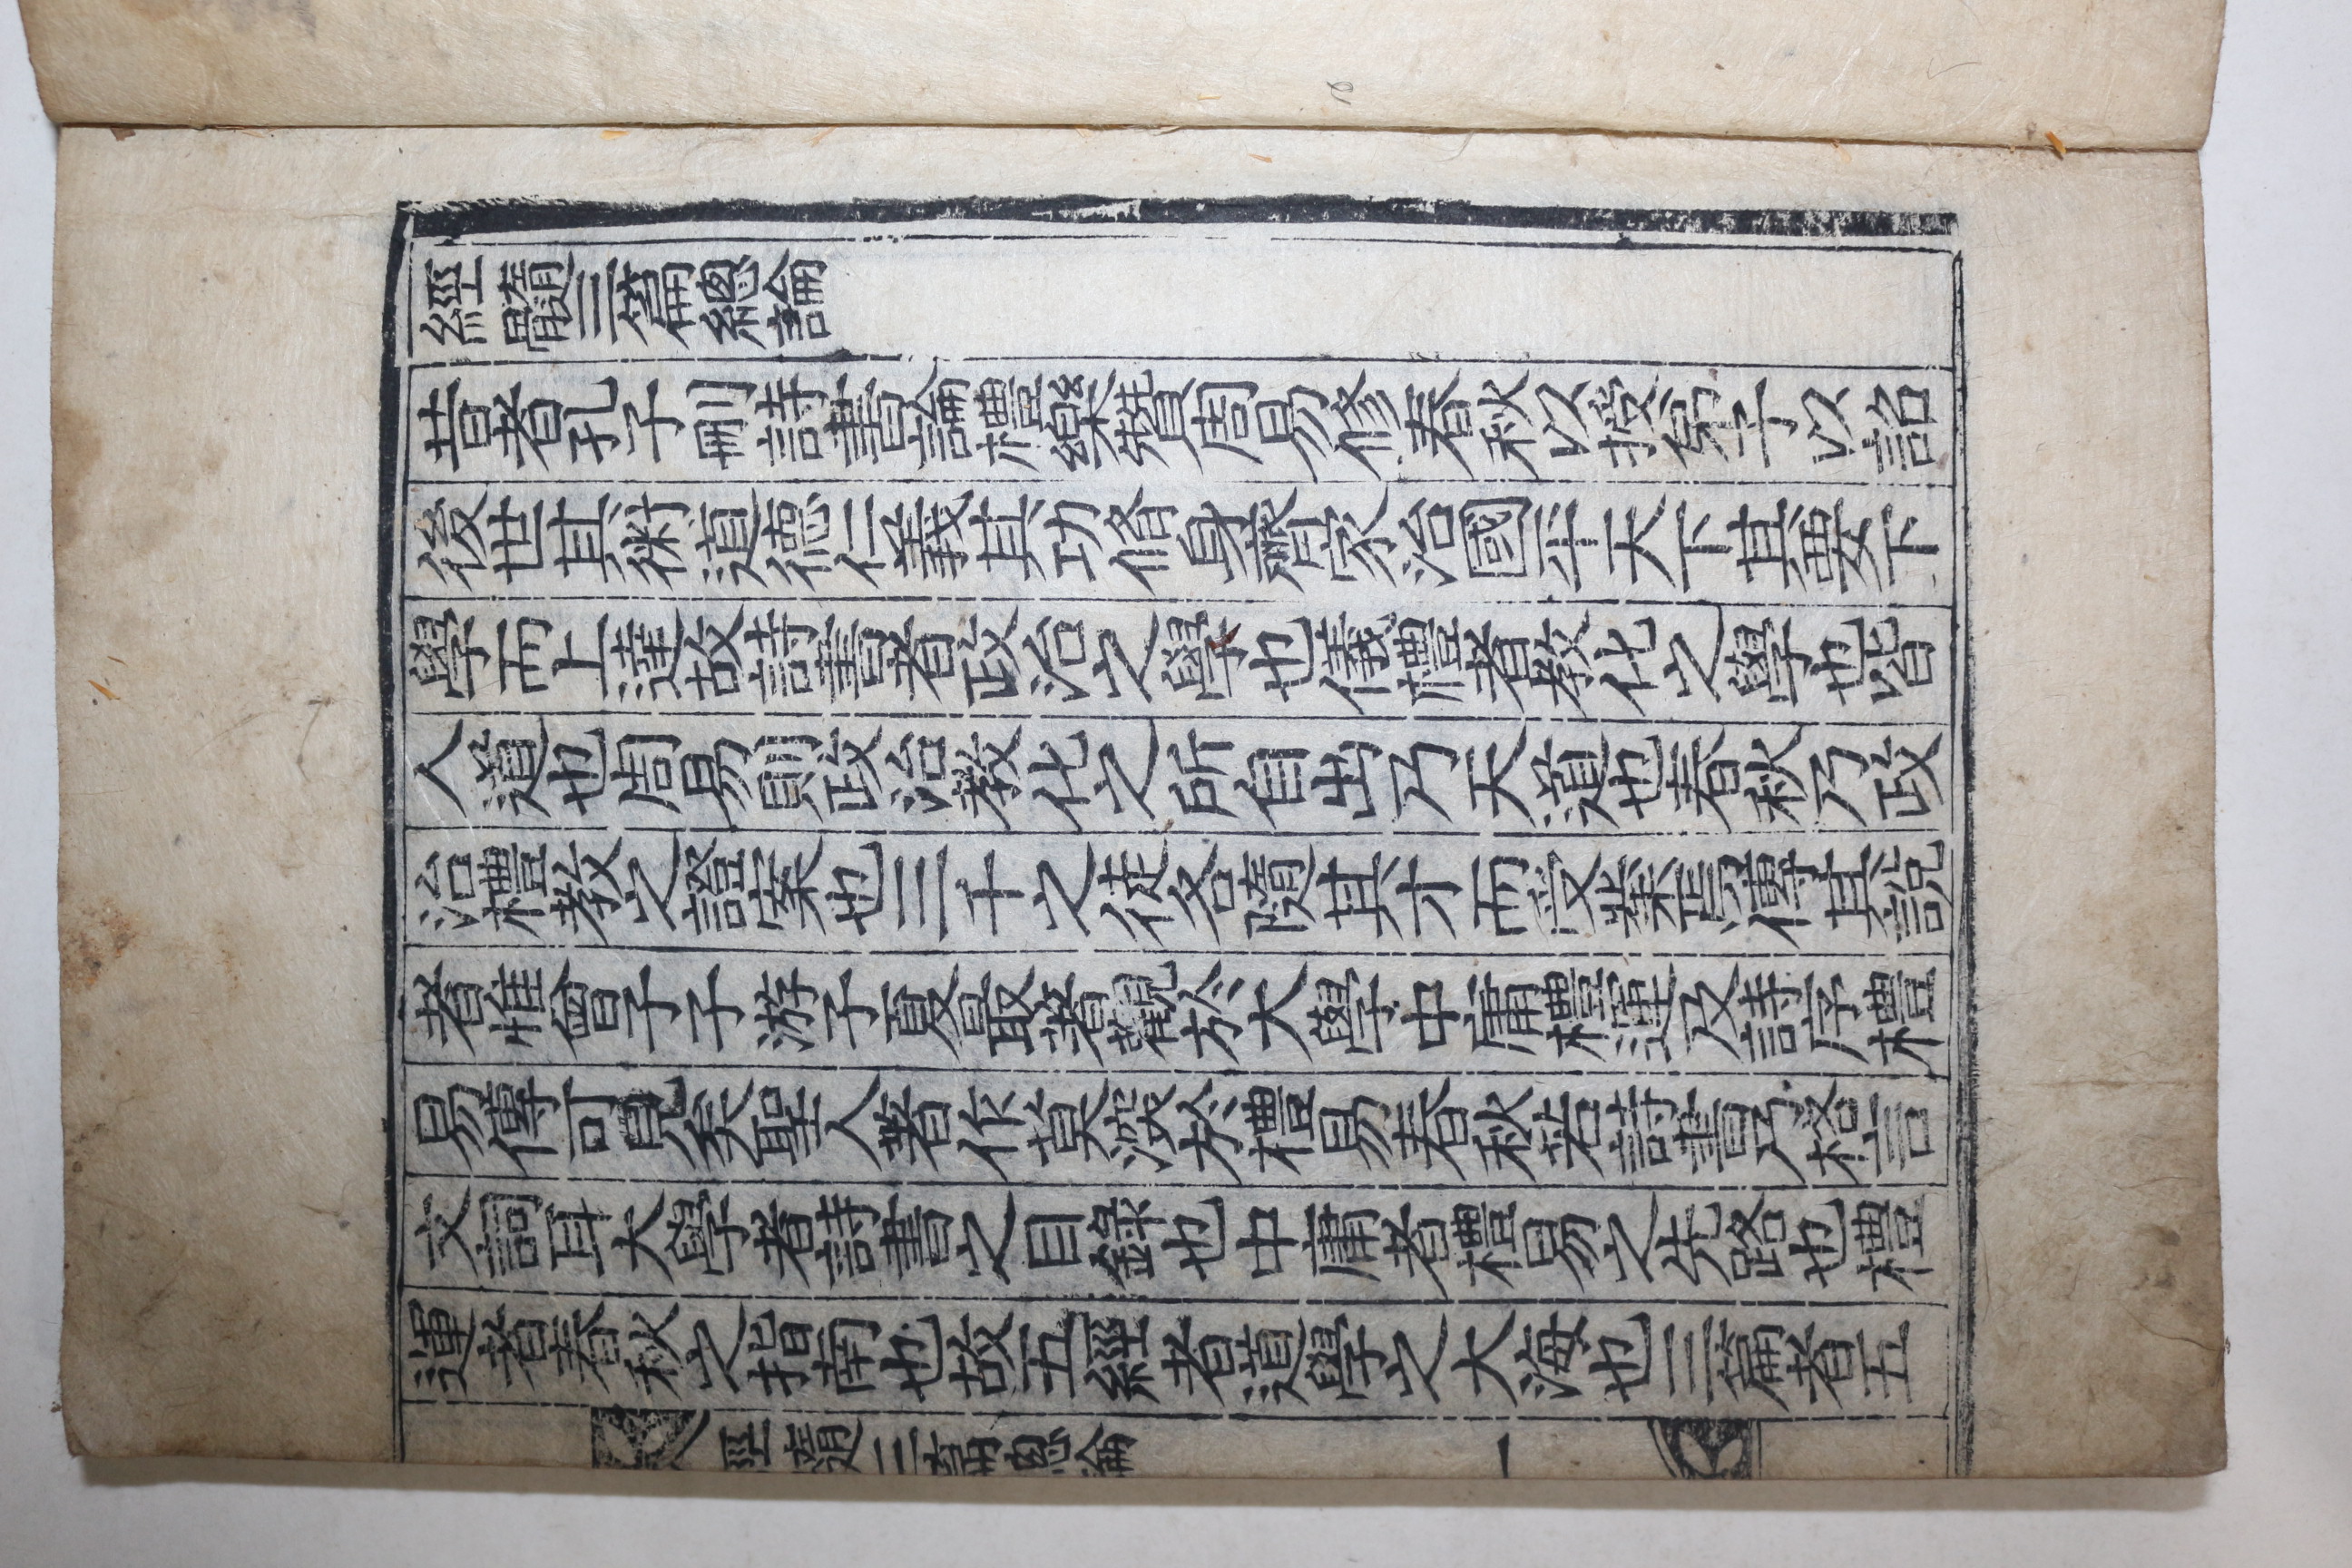 經髓三篇總論
昔者孔子刪詩書論禮樂贊周易修春秋以授弟子以詔
後世其術道德仁義其功脩身齊家治國平天下其要下
學而上達故詩書者政治之學也儀禮者教化之學也皆
人道也周易則政治教化之所自出乃天道也春秋乃政
治禮教之證案也三千之徒各隨其才而受業焉傳其說
者惟曾子子游子夏最著觀於大學中庸禮運及詩序禮
易傳可見矣聖人著作莫深於禮易春秋若詩書乃格言
文詞耳大學者詩書之目錄也中庸者禮易之先路也禮
運者春秋之指南也故五經者道學之大海也三篇者五
經髓三篇總論
一